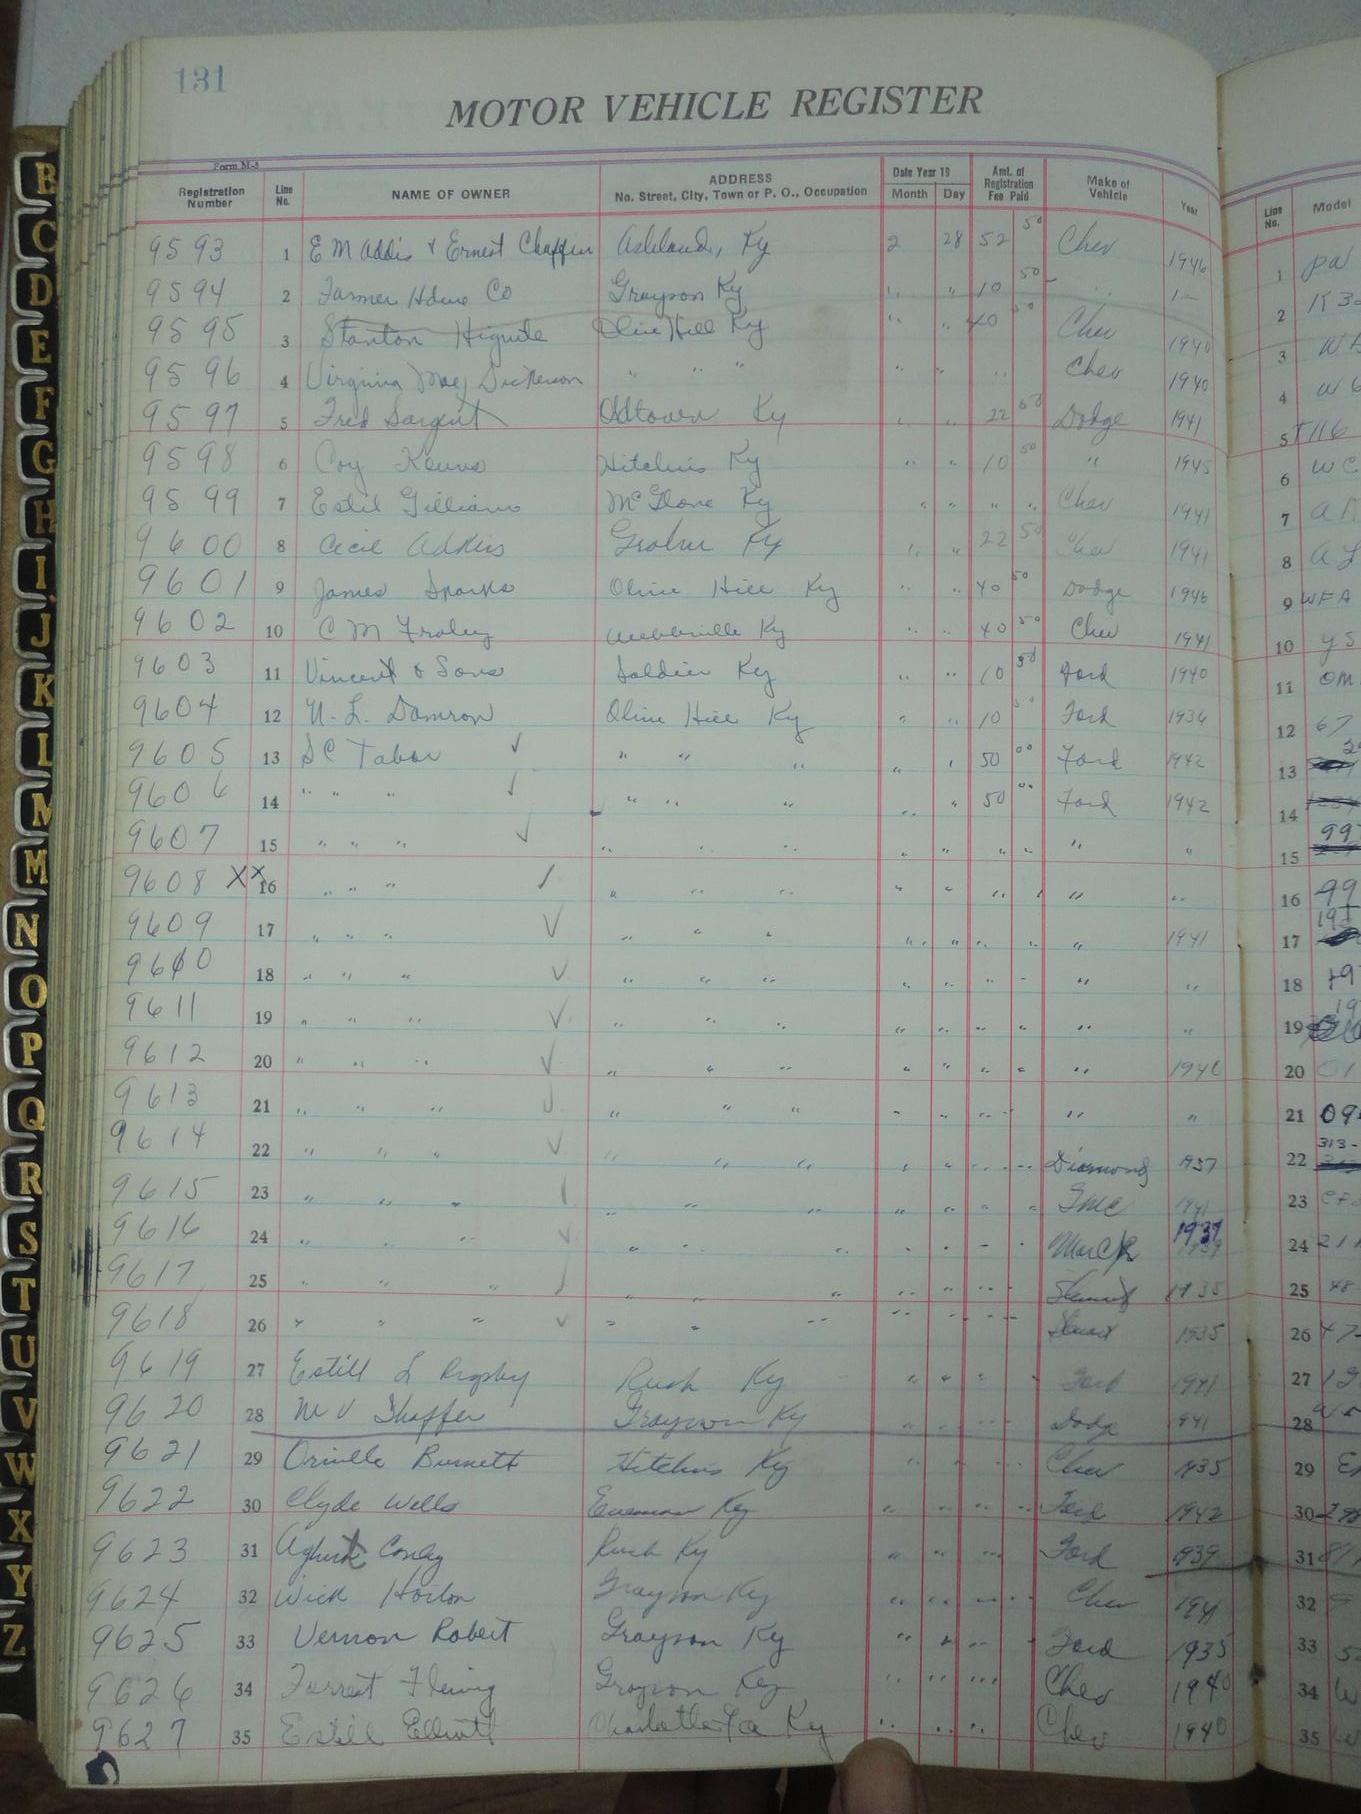 131
MOTOR VEHICLE REGISTER
Form M-8
Registration Number Line No. NAME OF OWNER ADDRESS No. Street, City, Town or P. O., Occupation Date Year 19 Month Day Amt. of Registration Fee Paid Make of Vehicle Year Line No. Model
9593 1 E M Addis & Ernest Chaffin Ashland, Ky 2 28 52 50 Chev 1946 1
9594 2 Farmer Hdwe Co Grayson Ky " " 10 50 2
9595 3 Stanton Hignite Olive Hill Ky " " 40 50 Chev 1940 3
9596 4 Virginia Mae Dickerson " " " " " " Chev 1940 4
9597 5 Fred Sargent Oldtown Ky " " 22 50 Dodge 1941 5
9598 6 Coy Hitchins Ky " " 10 50 " 1945 6 WC
9599 7 Estil Gilliams McGlone Ky " " " " Chev 1941 7
9600 8 Cecil Adkins Grahn Ky " " 22 50 Chev 1941 8
9601 9 James Sparks Olive Hill Ky " " 40 50 Dodge 1946 9 WFA
9602 10 C M Fraley Webbville Ky " " 40 50 Chev 1941 10
9603 11 Vincent & Sons Soldier Ky " " 10 50 Ford 1940 11
9604 12 N. L. Damron Olive Hill Ky " " 10 50 Ford 1936 12 67
9605 13 S C Tabor ✓ " " " " " 50 00 Ford 1942 13
9606 14 " " " ✓ " " " " " 50 00 Ford 1942 14
9607 15 " " " ✓ " " " " " " " " " 15 99
9608 XX 16 " " " ✓ " " " " " " " " " 16 99
9609 17 " " " ✓ " " " " " " " " 1941 17
9610 18 " " " ✓ " " " " " " " " " 18 19
9611 19 " " " ✓ " " " " " " " " " 19
9612 20 " " " ✓ " " " " " " " " 1946 20 01
9613 21 " " " ✓ " " " " " " " " " 21 09
9614 22 " " " ✓ " " " " " " " Diamond 1937 22 313-
9615 23 " " " ✓ " " " " " " " GMC 1941 23
9616 24 " " " ✓ " " " " " " " Mack 1939 24 211
9617 25 " " " ✓ " " " " " " " 1935 25 48
9618 26 " " " ✓ " " " " " " " 1935 26 47-
9619 27 Estill L Rigsby Rush Ky " " " " Ford 1941 27
9620 28 M V Shaffer Grayson Ky " " " " Dodge 1941 28
9621 29 Orville Burnett Hitchins Ky " " " " Chev 1935 29
9622 30 Clyde Wells Ky " " " " Ford 1942 30
9623 31 Conley Rush Ky " " " " Ford 1939 31
9624 32 Wick Horton Grayson Ky " " " " Chev 1941 32
9625 33 Vernon Robert Grayson Ky " " " " Ford 1935 33
9626 34 Forrest Fleming Grayson Ky " " " " Chev 1940 34
9627 35 Estill Elliott Ky " " " Chev 1940 35
B
C
D
E
F
G
H
I
J
K
L
M
M
N
O
P
Q
R
S
T
U
V
W
X
Y
Z